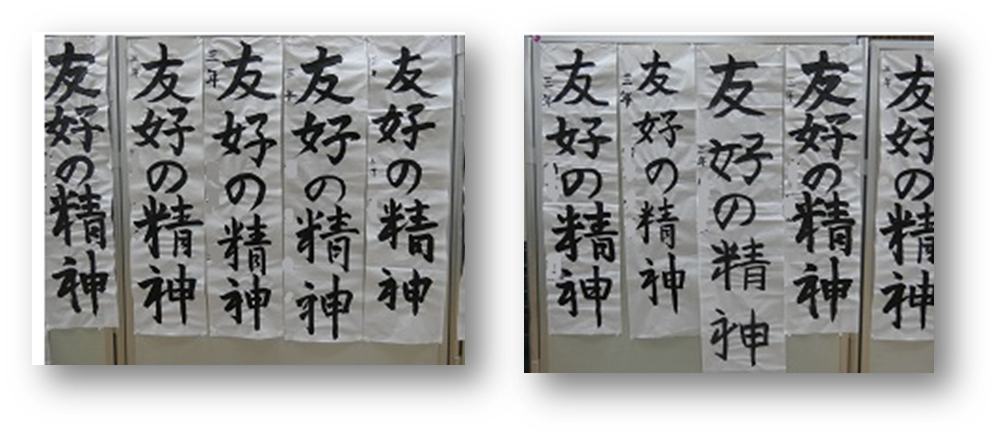 友好の精神
友好の精神
友好の精神
三年
友好の精神
友好の精神
友好の精神
友好の精神
友好の精神
三年
友好の精神
三年
友好の精神
三年